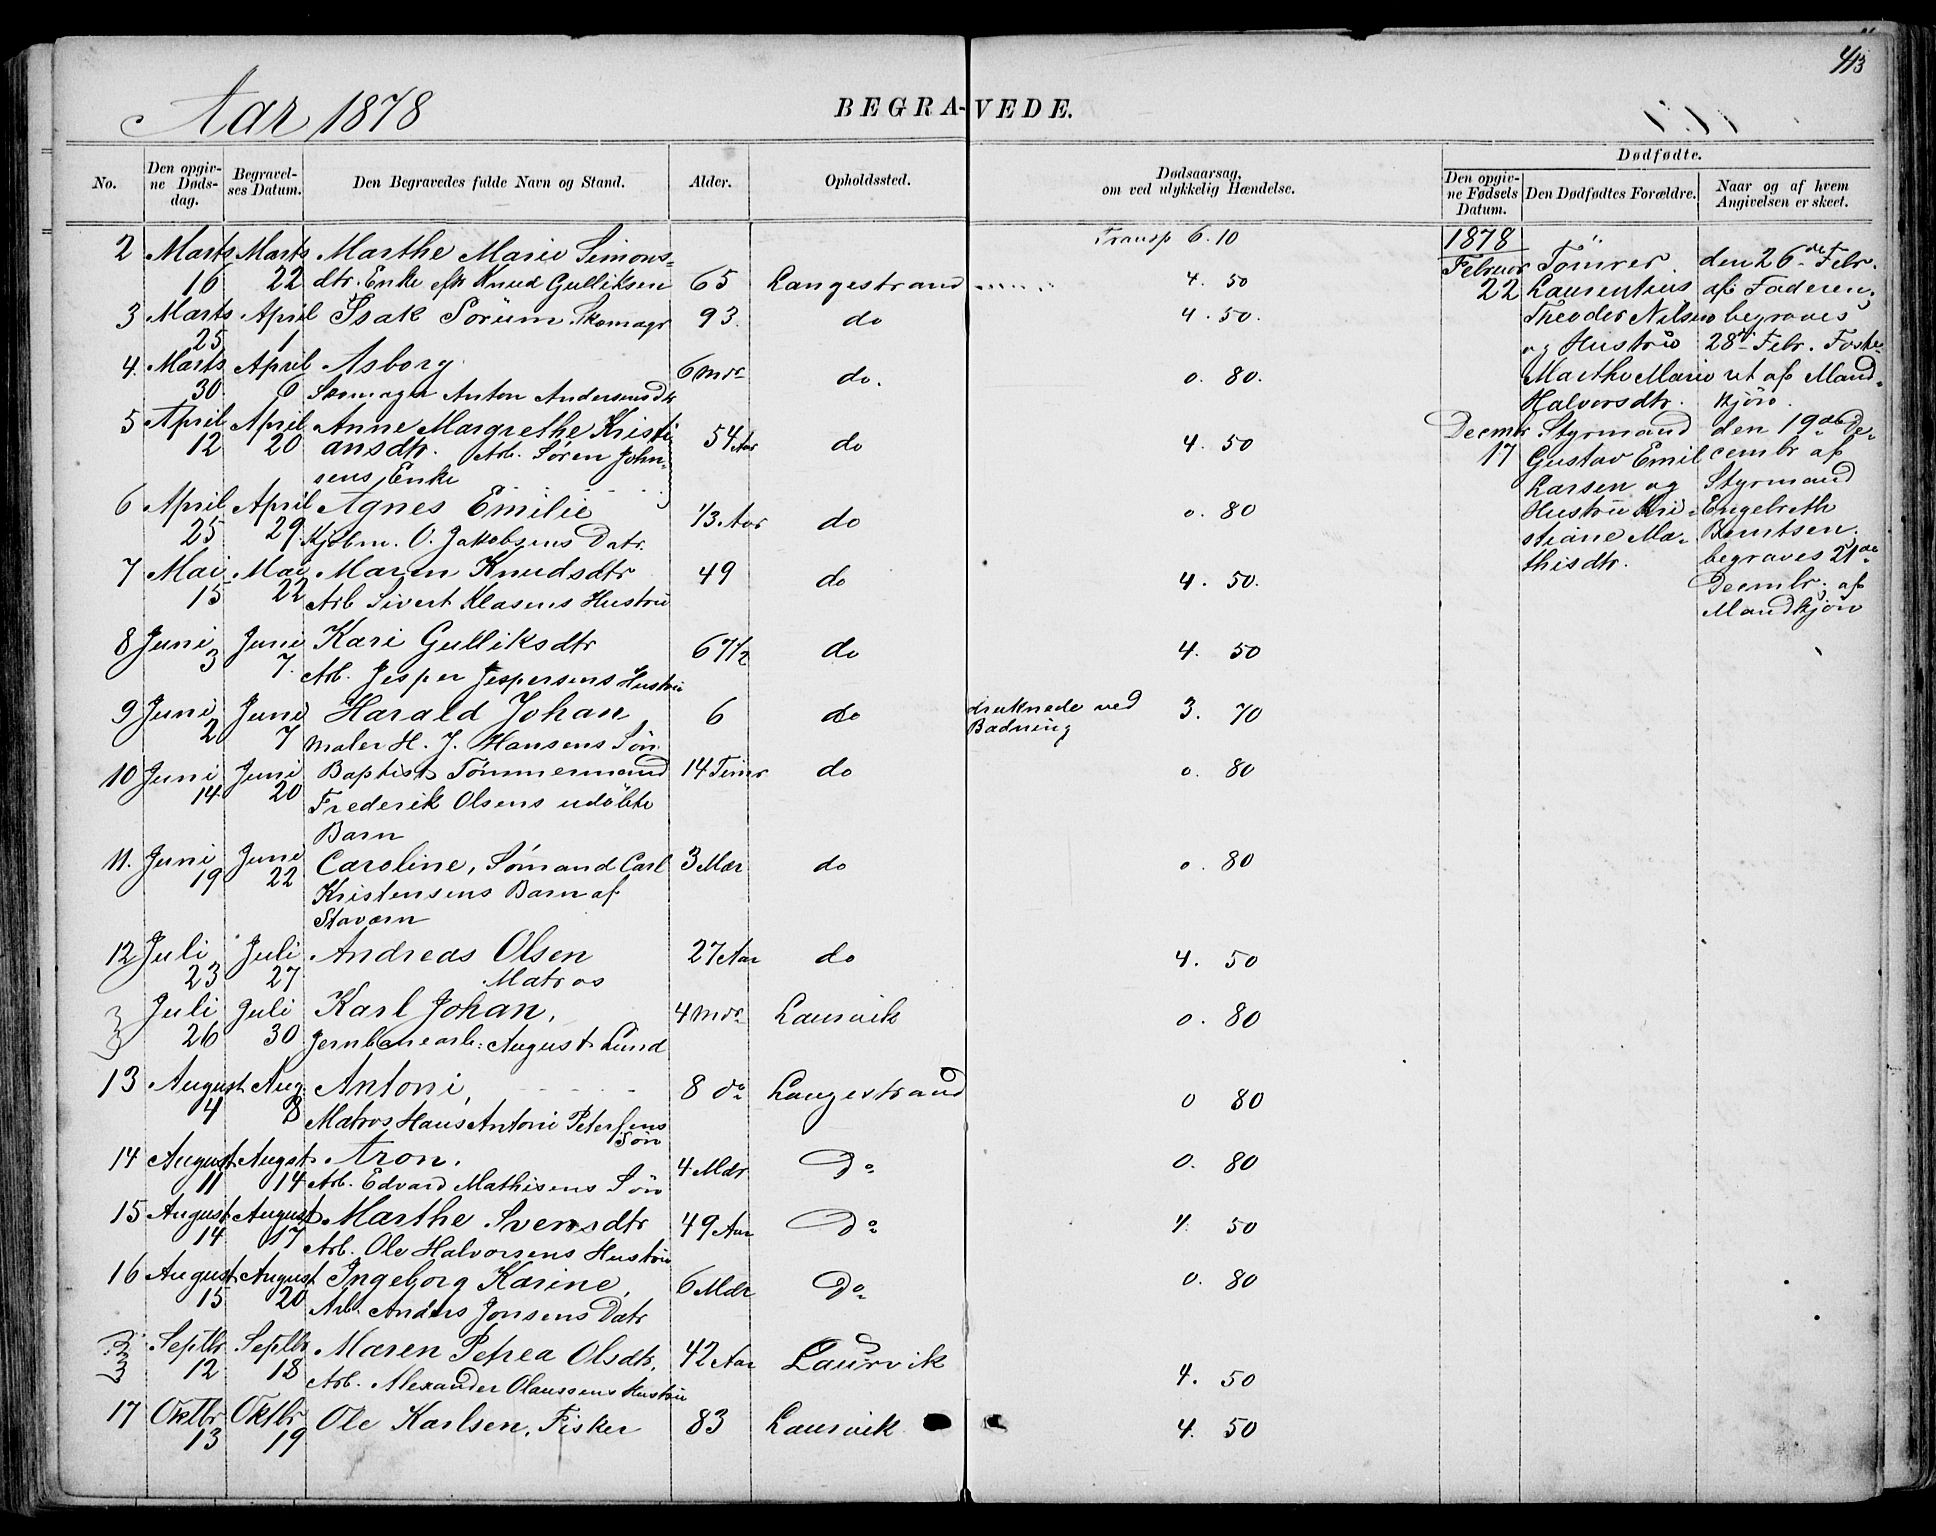 413
Aar 1878
BEGRAVEDE.
No.
Den opgivne Dødsdag.
Begravelses Datum.
Den Begravedes fulde Navn og Stand.
Alder.
Opholdssted.
Dødsaarsag, om ved ulykkelig Hændelse.
Dødfødte.
Den opgivne Fødsels Datum.
Den Dødfødtes Forældre.
Naar og af hvem Angivelsen er skeet.
Transp 6.10
2 Marts Marts Marthe Marie Simons-
16 22 dtr. Enke eft Knud Gulliksen 65 Langestrand 4. 50
3 Marts April Isak Sörum Skomagr 93. do 4. 50.
25 1
4. Marts April Asborg 6 Mdr do. 0. 80.
30 6 Anton Andersens Dtr
5 April April Anne Margrethe Kristi
12 20 ansdtr. Arb. Sören John- 54 Aar do 4. 50
sens Enke
6 April April Agnes Emilie 1/3 Aar do 0. 80
25 29 Kjöbm. O. Jakobsens Datr.
7 Mai Mai Maren Knudsdtr 49 do 4. 50.
15 22 Arb Sivert Klasens Hustru
8 Juni Juni Kari Gulliksdtr 67 1/2 do 4. 50
3 7. Arb. Jesper Jespersens Hustru
9 Juni Juni Harald Johan 6 do druknede ved 3. 70
2 7 Maler H. J. Hansens Sön Badning
10 Juni Juni Baptist Tömmermand 14 Timer do 0. 80
14 20 Frederik Olsens udöbte
Barn
11. Juni Juni Caroline, Sömand Carl 3 Mdr do 0. 80
19 22 Kristensens Barn af
Staværn
12 Juli Juli Andreas Olsen 27 Aar do 4. 50
23 27 Matros
Juli Juli Karl Johan, 4 Mdr Laurvik 0. 80
26 30 Jernbanearb: August Lund
13 August Aug. Antoni, 8 do Langestrand 0 80
4 8 Matros Hans Antoni Petersens
Sön
14 August Augst Aron. 4 Mdr Do 0. 80
11 14 Arb. Edvard Mathisens Sön
15 August August Marthe Svensdtr 49 Aar Do 4. 50
14 17 Arb. Ole Halvorsens Hustru
16 August August Ingeborg Karine, 6 Mdr Do 0. 80
15 20 Arb. Anders Jonsens Datr
Septbr Septbr Maren Petrea Olsdtr, 42 Aar Laurvik 4. 50
12 18 Arb. Alexander Olaussens Hustru
17 Oktbr Oktbr Ole Karlsen, Fisker 83 Laurvik 4. 50
13 19
1878
Februar Tömrer den 26de Febr.
22 Laurentius af Faderen;
Theodor Nilsen begraves
og Hustru 28de Febr. Foste-
Marthe Marie ret af Mand-
Halvorsdtr. kjön.
Decmbr Styrmand den 19de De-
17 Gustav Emil cembr af
Larsen og Styrmand
Hustru Kri- Engebreth
stiane Ma- Berntsen,
thisdtr. begraves 21de
Decmbr; af
Mandkjön